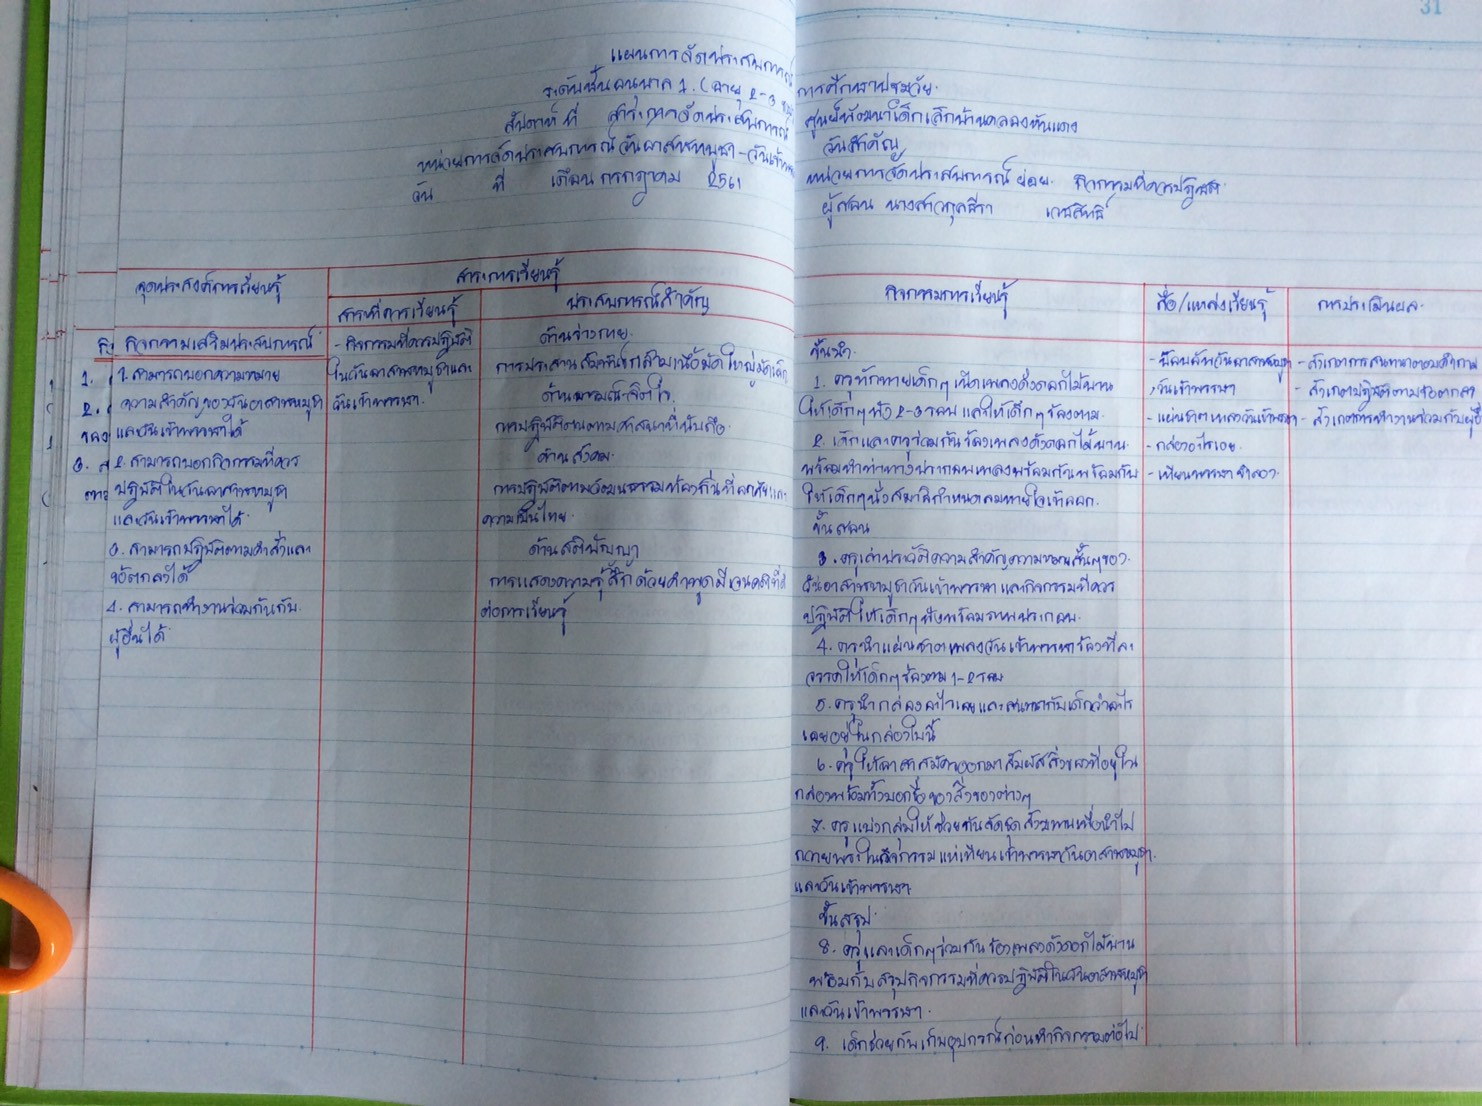 31
แผนการจัดประสบการณ์การศึกษาปฐมวัย
ระดับชั้นอนุบาล 1 (อายุ 2-3 ศูนย์พัฒนาเด็กเล็กบ้านคลองหันแดง
สัปดาห์ที่ สาระการจัดประสบการณ์ วันสำคัญ
หน่วยการจัดประสบการณ์ วันอาสาฬหบูชา-วันเข้าพรรษา หน่วยการจัดประสบการณ์ย่อย กิจกรรมที่ควรปฏิบัติ
วัน ที่ เดือน กรกฎาคม 2561 ผู้สอน นางสาวกุลธีรา เวชสิทธิ์
จุดประสงค์การเรียนรู้
สาระการเรียนรู้
สาระที่ควรเรียนรู้
ประสบการณ์สำคัญ
กิจกรรมการเรียนรู้
สื่อ/แหล่งเรียนรู้
การประเมินผล
กิจกรรมเสริมประสบการณ์
1. สามารถบอกความหมาย
ความสำคัญของวันอาสาฬหบูชา
และวันเข้าพรรษาได้
2. สามารถบอกกิจกรรมที่ควร
ปฏิบัติในวันอาสาฬหบูชา
และวันเข้าพรรษาได้
3. สามารถปฏิบัติตามคำสั่งและ
ข้อตกลงได้
4. สามารถทำงานร่วมกันกับ
ผู้อื่นได้
- กิจกรรมที่ควรปฏิบัติ
ในวันอาสาฬหบูชาและ
วันเข้าพรรษา
ด้านร่างกาย
การประสานสัมพันธ์กล้ามเนื้อมัดใหญ่มัดเล็ก
ด้านอารมณ์-จิตใจ
การปฏิบัติตนตามศาสนาที่นับถือ
ด้านสังคม
การปฏิบัติตามวัฒนธรรมท้องถิ่นที่อาศัยและ
ความเป็นไทย
ด้านสติปัญญา
การแสดงความรู้สึกด้วยคำพูดมีเจตคติที่ดี
ต่อการเรียนรู้
ขั้นนำ
1. ครูทักทายเด็กๆ เปิดเพลงดั่งดอกไม้บาน
ให้เด็กๆ ฟัง 2-3 รอบ และให้เด็กๆ ร้องตาม
2. เด็กและครูร่วมกันร้องเพลงดั่งดอกไม้บาน
พร้อมทำท่าทางประกอบเพลงพร้อมกันพร้อมกับ
ให้เด็กๆ นั่งสมาธิกำหนดลมหายใจเข้าออก
ขั้นสอน
3. ครูเล่าประวัติความสำคัญความหมายสั้นๆ ของ
วันอาสาฬหบูชาวันเข้าพรรษาและกิจกรรมที่ควร
ปฏิบัติให้เด็กๆ ฟังพร้อมภาพประกอบ
4. ครูนำแผ่นชาตเพลงวันเข้าพรรษาร้องทีละ
วรรคให้เด็กๆ ร้องตาม 1-2 รอบ
5. ครูนำกล่องอะไรเอ่ย และสนทนากับเด็กว่าอะไร
เอยอยู่ในกล่องใบนี้
6. ครูให้อาสาสมัครออกมาสัมผัสสิ่งของที่อยู่ใน
กล่องพร้อมทั้งบอกชื่อของสิ่งของต่างๆ
7. ครูแบ่งกลุ่มให้ช่วยกันจัดชุดสังฆทานเพื่อนำไป
ถวายพระในกิจกรรมแห่เทียนเข้าพรรษาวันอาสาฬหบูชา
และวันเข้าพรรษา
ขั้นสรุป
8. ครูและเด็กๆ ร่วมกันร้องเพลงดั่งดอกไม้บาน
พร้อมกับสรุปกิจกรรมที่ควรปฏิบัติในวันอาสาฬหบูชา
และวันเข้าพรรษา
9. เด็กช่วยกันเก็บอุปกรณ์ก่อนทำกิจกรรมต่อไป
วันอาสาฬหบูชา
วันเข้าพรรษา
- แผ่นชาตเพลงวันเข้าพรรษา
- กล่องอะไรเอย
- เทียนพรรษาจำลอง
- สังเกตการสนทนาตอบคำถาม
- สังเกตปฏิบัติตามข้อตกลง
- สังเกตการทำงานร่วมกับผู้อื่น